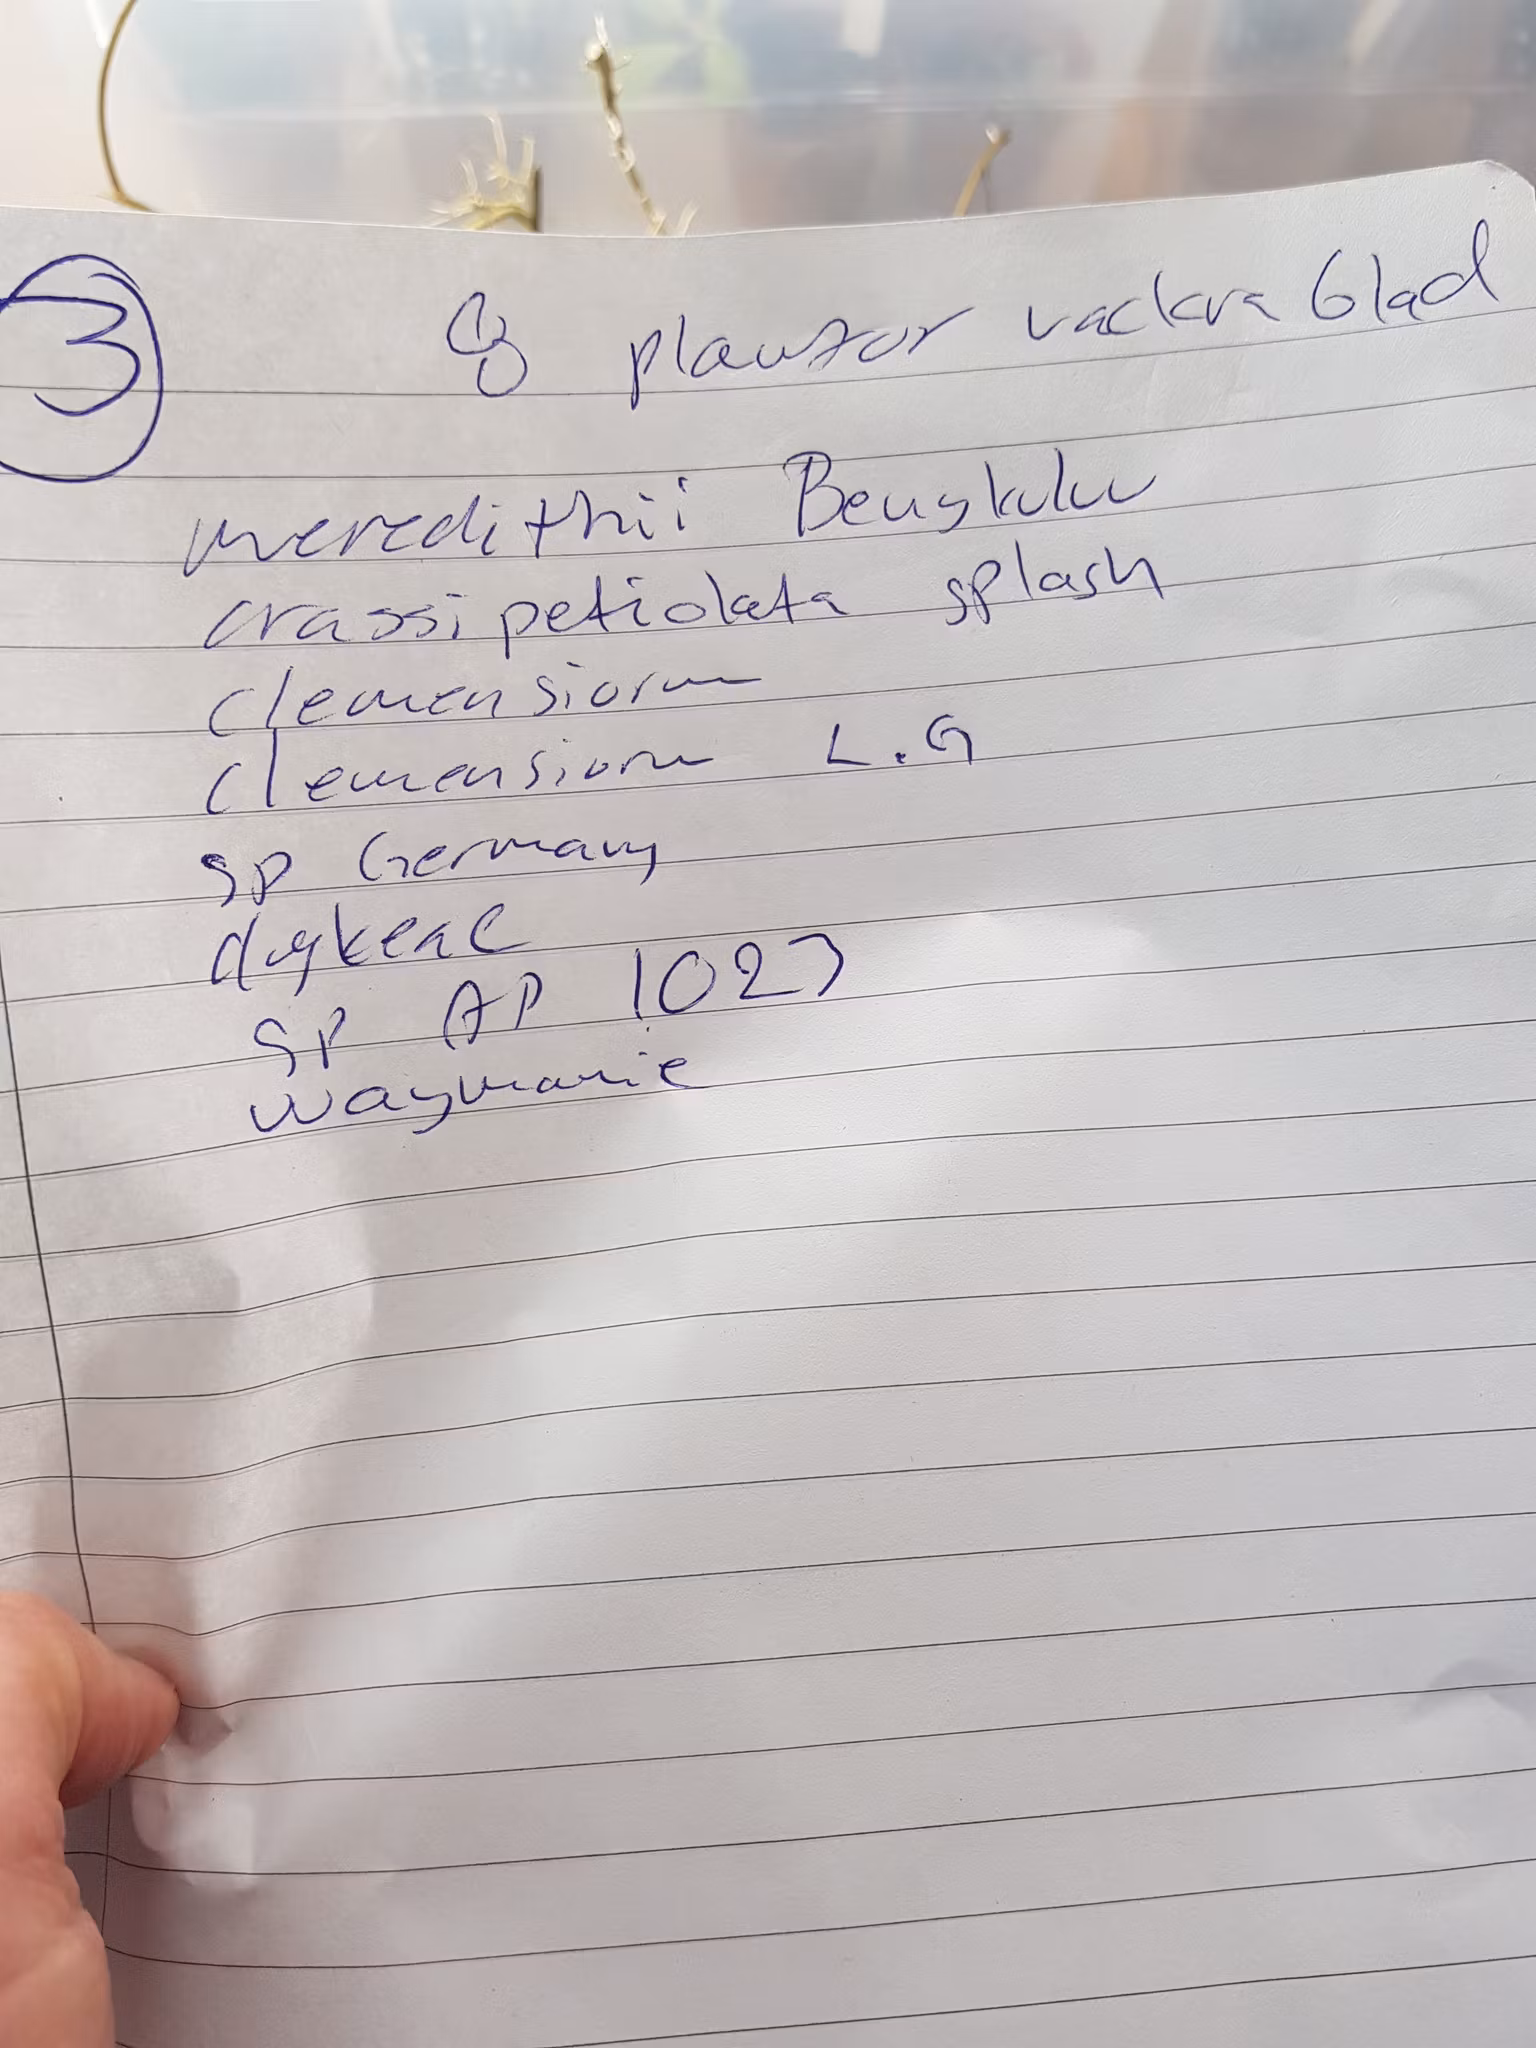 3
8 plantor vackra blad
meredithii Bengkulu
crassipetiolata splash
clemensiorum
clemensiorum L.G
sp Germany
dykeae
SP AP 1023
waymanie